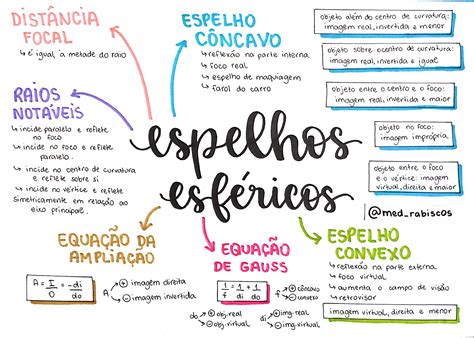 DISTÂNCIA
FOCAL
↳ é igual a metade do raio
ESPELHO
CÔNCAVO
↳ reflexão na parte interna
↳ foco real
↳ espelho de maquiagem
↳ farol do carro
objeto além do centro de curvatura:
imagem real, invertida e menor
objeto sobre o centro de curvatura:
imagem real, invertida e igual
objeto entre o centro e o foco:
imagem real, invertida e maior
objeto no foco:
imagem imprópria
objeto entre o foco
e o vértice: imagem
virtual, direita e maior
RAIOS
NOTÁVEIS
↳ incide paralelo e reflete
no foco
↳ incide no foco e reflete
paralelo
↳ incide no centro de curvatura
e reflete sobre si
↳ incide no vértice e reflete
simetricamente em relação ao
eixo principal
espelhos
esféricos
@med_rabiscos
EQUAÇÃO DA
AMPLIAÇÃO
A = I/O = -di/do
A + imagem direita
- imagem invertida
EQUAÇÃO
DE GAUSS
1/f = 1/di + 1/do
f + côncavo
- convexo
do + obj. real
- obj. virtual
di + img. real
- img. virtual
ESPELHO
CONVEXO
↳ reflexão na parte externa
↳ foco virtual
↳ aumenta o campo de visão
↳ retrovisor
imagem virtual, direita e menor